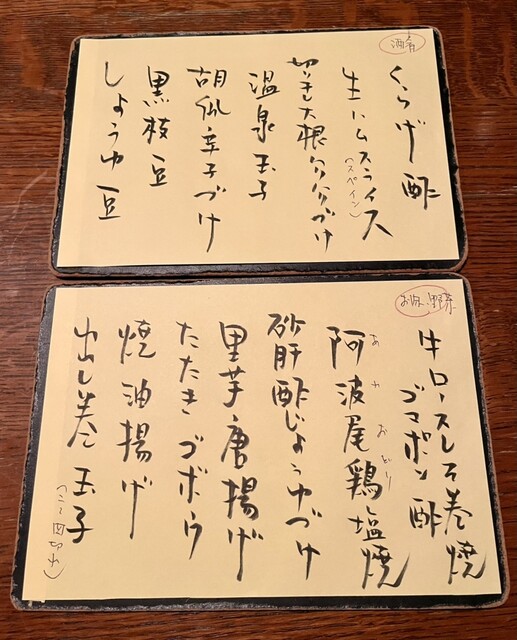 酒肴
くらげ酢
生ハムスライス
(スペイン)
切干し大根ハリハリづけ
温泉玉子
胡瓜辛子づけ
黒枝豆
しょうゆ豆
お肉・野菜
牛ロースしそ巻焼
ゴマポン酢
阿波尾鶏塩焼
あわおどり
砂肝酢じょうゆづけ
里芋唐揚げ
たたきゴボウ
焼油揚げ
出し巻玉子